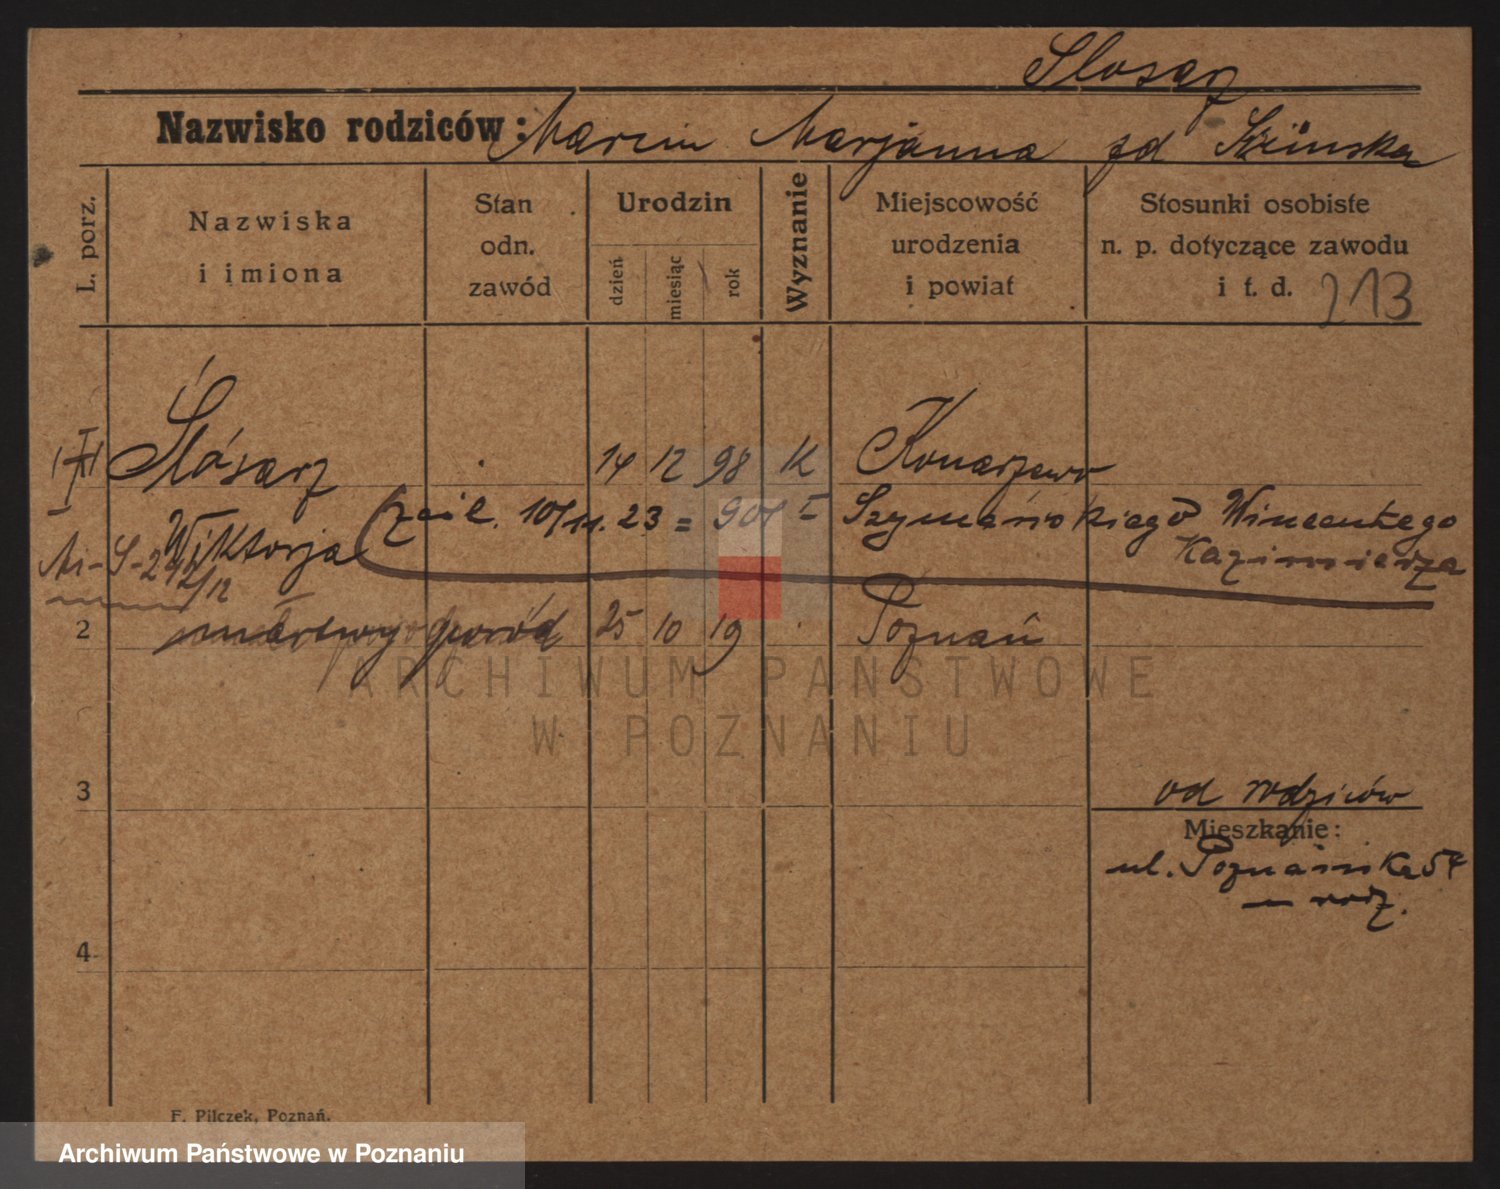 Slosarz
Nazwisko rodziców: Marcin Marjanna zd
L. porz.
Nazwiska i imiona
Stan odn. zawód
Urodzin
dzień
miesiąc
rok
Wyznanie
Miejscowość urodzenia i powiat
Stosunki osobiste n. p. dotyczące zawodu i t. d. 213
Ślósarz 14 12 98 K Konarzewo
10/11. 23 = 901 I Szymańskiego Wincentego
Wiktorja Kazimierza
2 martwy poród 25 10 19 Poznań
3
od rodziców
Mieszkanie:
ul. Poznańska 54
rodz.
4
F. Pilczek, Poznań.
ARCHIWUM PAŃSTWOWE
W POZNANIU
Archiwum Państwowe w Poznaniu